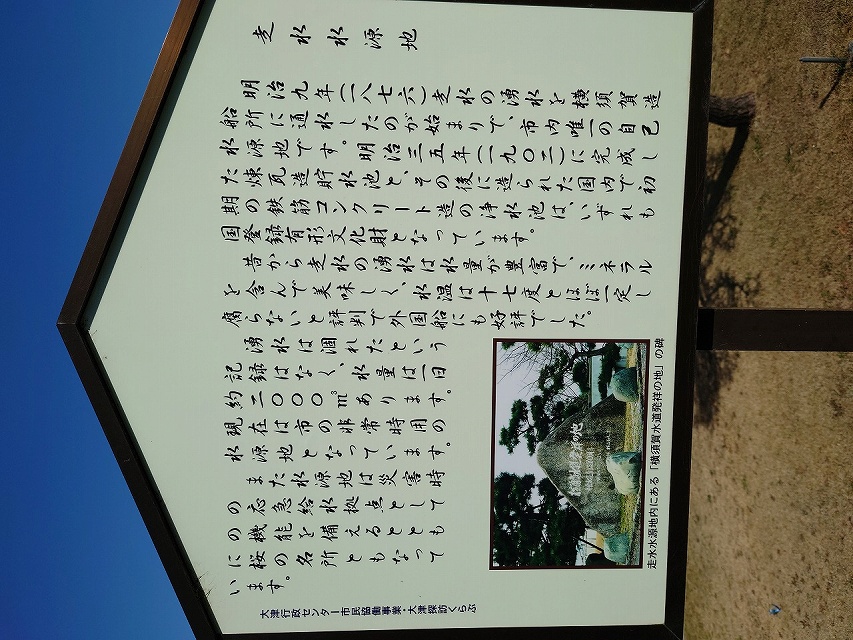 走水水源地
明治九年(一八七六)走水の湧水を横須賀造
船所に通水したのが始まりで、市内唯一の自己
水源地です。明治三五年(一九〇二)に完成し
た煉瓦造貯水池と、その後に造られた国内で初
期の鉄筋コンクリート造の浄水池は、いずれも
国登録有形文化財となっています。
昔から走水の湧水は水量が豊富で、ミネラル
を含んで美味しく、水温は十七度とほぼ一定し
腐らないと評判で外国船にも好評でした。
湧水は涸れたという
記録はなく、水量は一日
約二〇〇〇㎥あります。
現在は市の非常時用の
水源地となっています。
また水源地は災害時
の応急給水拠点として
の機能を備えるととも
に桜の名所ともなって
います。
走水水源地内にある「横須賀水道発祥の地」の碑
大津行政センター市民協働事業・大津探訪くらぶ